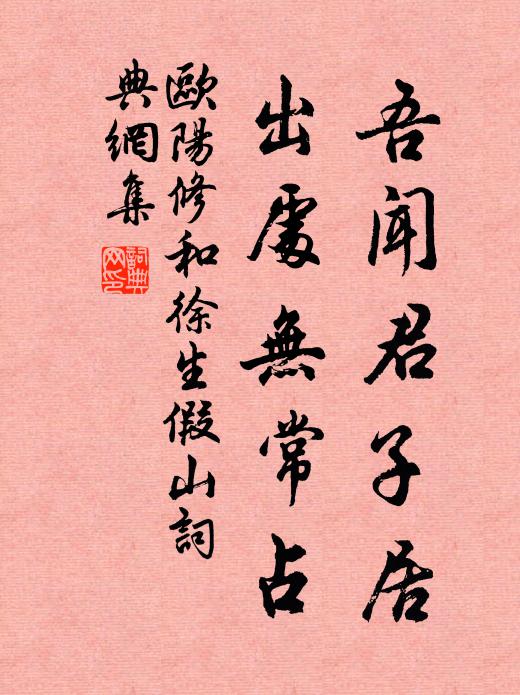 吾聞君子居
出處無常占
歐陽修和徐生假山詞
典網集
詞典
网印